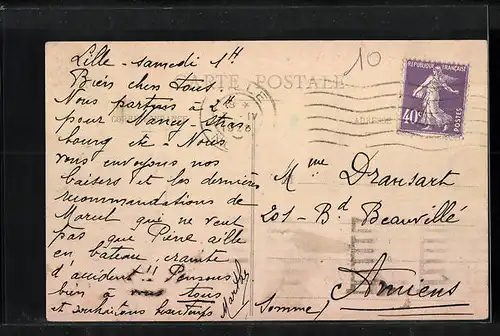 10
Lille - samedi 1H
Biens chers tous
CARTE POSTALE
Nous partons à 2h
pour Nancy - Stras
bourg etc - Nous
vous envoyons nos
baisers et les dernières
recommandations de
qui ne veut
pas que aille
en bateau, crainte
d'accident!! Pensons
bien à tous
et souhaitons
RÉPUBLIQUE FRANÇAISE
40c
POSTES
LILLE
ADRESSE
Mme Dransart
201 - Bd Beauvillé
Amiens
(Somme)